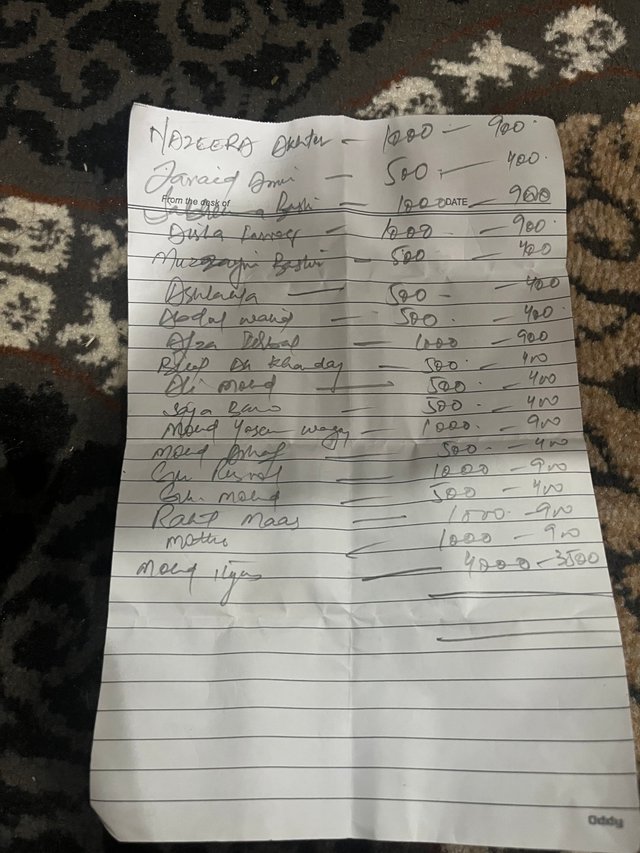 NAZEERA Akhter - 1000 - 900.
Javaid Amin - 500. - 400.
From the desk of DATE
Bashir - 1000 - 900
Aisha - 1000. - 900.
Muzayni Bashir - 500 - 400
500 - 400
wahid - 500. - 400.
Afza Iqbal - 1000 - 900
Ah Khanday - 500. - 400
Ali Mohd - 500. - 400
Saja Bano - 500 - 400
Mohd Yosen wagay - 1000. - 900
Mohd - 500. - 400
Gh Rasool - 1000 - 900
Gh. Mohd - 500 - 400
Maas - 1000. - 900
1000 - 900
Mohd Ilyas - 4000 - 3500
Oddy